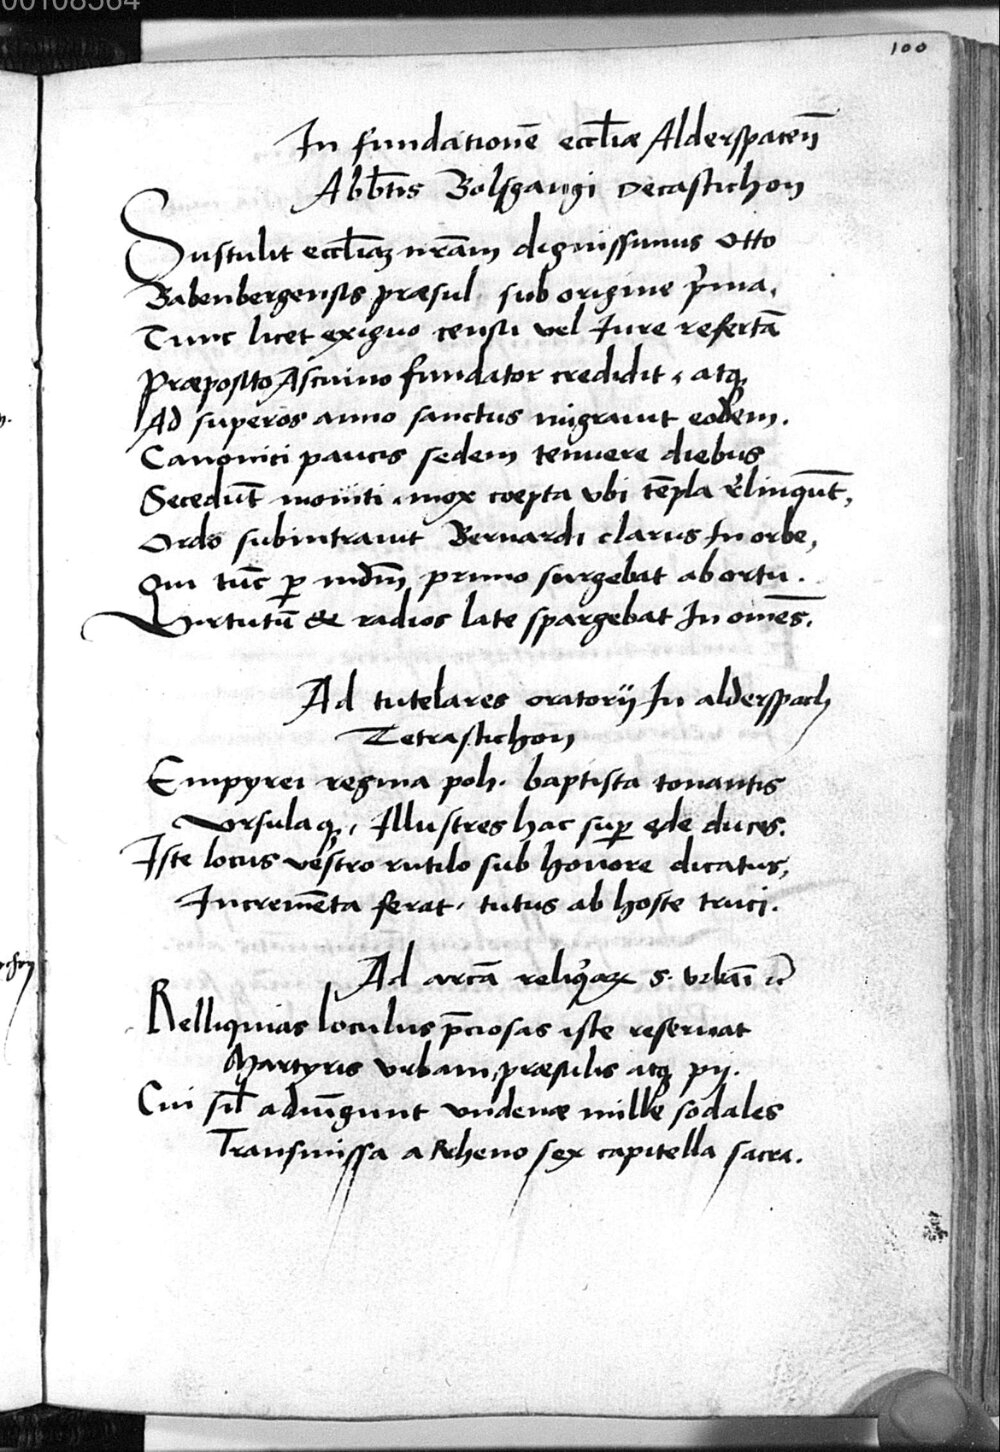 00108564
100
In fundationē eccl̄iæ Alderspaceñ
Abb̄tis Bolfgangi Decastichon
Sustulit eccl̄iaꝫ nr̄am dignissimus otto
Babenbergensis præsul sub origine p̄ma,
Tunc licet exiguo censu vel Iure refertā
Præposito Ascuino fundator credidit, atqꝫ
Ad superos anno sanctus migrauit eodem.
Canonici paucis sedem tenuere diebus
Secedūt moniti, mox coepta vbi tēpla r̄linqūt,
Ordo subintrauit Bernardi clarus In orbe,
Qui tūc ꝑ mdm̄ primo surgebat ab ortu.
Virtutū & radios late spargebat In omēs.
Ad tutelares oratorij In alderspach
Tetrastichon
Empyrei regina poli. baptista tonantis
Vrsulaqꝫ, Illustres hac suꝑ ęde duces.
Iste locus vestro rutilo sub honore dicatus,
Incremēta ferat, tutus ab hoste truci.
Ad arcā reliq̄aꝝ S. vrbāi
Relliquias loculus p̄ciosas iste reseruat
Martyris vrbani, præsulis atqꝫ pij.
Cui sil̄ adiūgunt vndenæ mille sodales
Transmissa a Rheno sex capitella sacra.